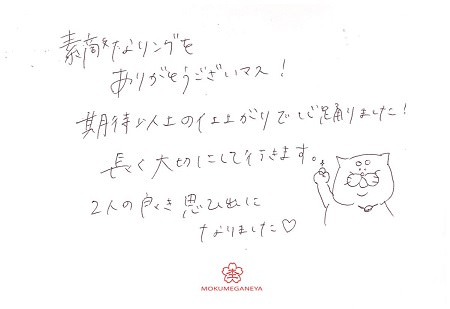 素敵なリングを
ありがとうございマス!
期待以上の仕上がりで心踊りました!
長く大切にして行きます。
2人の良き思ひ出に
なりました♡
MOKUMEGANEYA